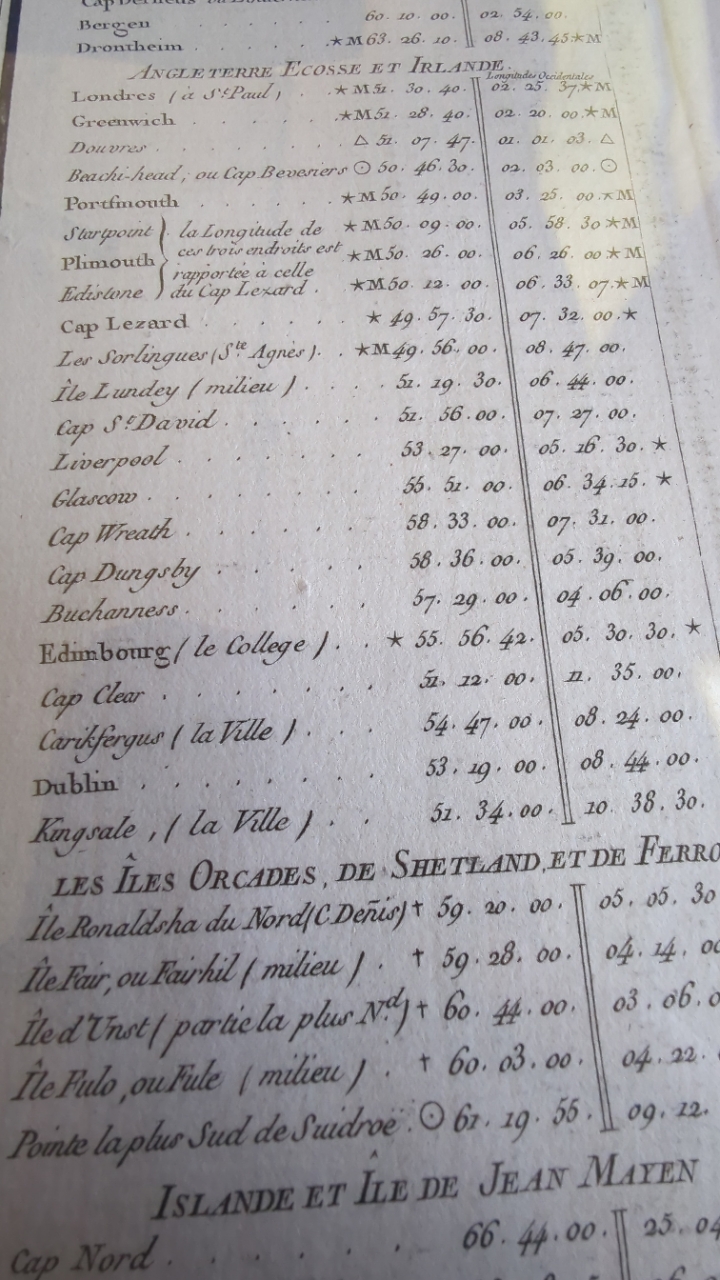 Bergen . . . . . 60. 10. 00. 02. 54. 00.
Drontheim . . . . . ★M 63. 26. 10. 08. 43. 45 ★M
ANGLETERRE ECOSSE ET IRLANDE.
Longitudes Occidentales
Londres (à St. Paul) . . ★M 51. 30. 40. 02. 25. 37. ★M
Greenwich . . . . . ★M 51. 28. 40. 02. 20. 00. ★M
Douvres . . . . . . △ 51. 07. 47. 01. 01. 03. △
Beachi-head, ou Cap Bevesiers ☉ 50. 46. 30. 02. 03. 00. ☉
Portsmouth . . . . . ★M 50. 49. 00. 03. 25. 00. ★M
Startpoint la Longitude de ★M 50. 09. 00. 05. 58. 30 ★M
Plimouth ces trois endroits est ★M 50. 26. 00. 06. 26. 00 ★M
rapportée à celle
Edistone du Cap Lezard . ★M 50. 12. 00. 06. 33. 07. ★M
Cap Lezard . . . . . ★ 49. 57. 30. 07. 32. 00. ★
Les Sorlingues (Ste. Agnès) . . ★M 49. 56. 00. 08. 47. 00.
Île Lundey (milieu) . . . . 51. 19. 30. 06. 44. 00.
Cap St. David . . . . . 51. 56. 00. 07. 27. 00.
Liverpool . . . . . . 53. 27. 00. 05. 16. 30. ★
Glascow . . . . . . 55. 51. 00. 06. 34. 15. ★
Cap Wreath . . . . . 58. 33. 00. 07. 31. 00.
Cap Dungsby . . . . . 58. 36. 00. 05. 39. 00.
Buchanness . . . . . 57. 29. 00. 04. 06. 00.
Edimbourg (le College) . . ★ 55. 56. 42. 05. 30. 30. ★
Cap Clear . . . . . . 51. 12. 00. 11. 35. 00.
Carikfergus (la Ville) . . . 54. 47. 00. 08. 24. 00.
Dublin . . . . . . . 53. 19. 00. 08. 44. 00.
Kingsale, (la Ville) . . 51. 34. 00. 10. 38. 30.
LES ÎLES ORCADES, DE SHETLAND, ET DE FERRO
Île Ronaldsha du Nord (C. Deñis) † 59. 20. 00. 05. 05. 30
Île Fair, ou Fairhil (milieu) . † 59. 28. 00. 04. 14. 00
Île d'Unst (partie la plus Nd.) † 60. 44. 00. 03. 06. 0
Île Fulo, ou Fule (milieu) . † 60. 03. 00. 04. 22.
Pointe la plus Sud de Suidroë . ☉ 61. 19. 55. 09. 12.
ISLANDE ET ÎLE DE JEAN MAYEN
Cap Nord . . . . . . 66. 44. 00. 25. 04